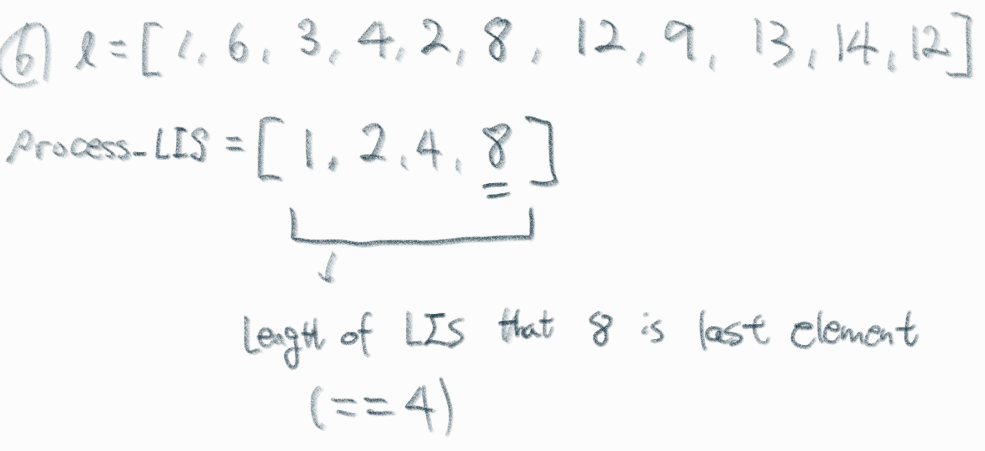 ⑥ l = [1, 6, 3, 4, 2, 8, 12, 9, 13, 14, 12]
Process_LIS = [1, 2, 4, 8]
Length of LIS that 8 is last element
(==4)